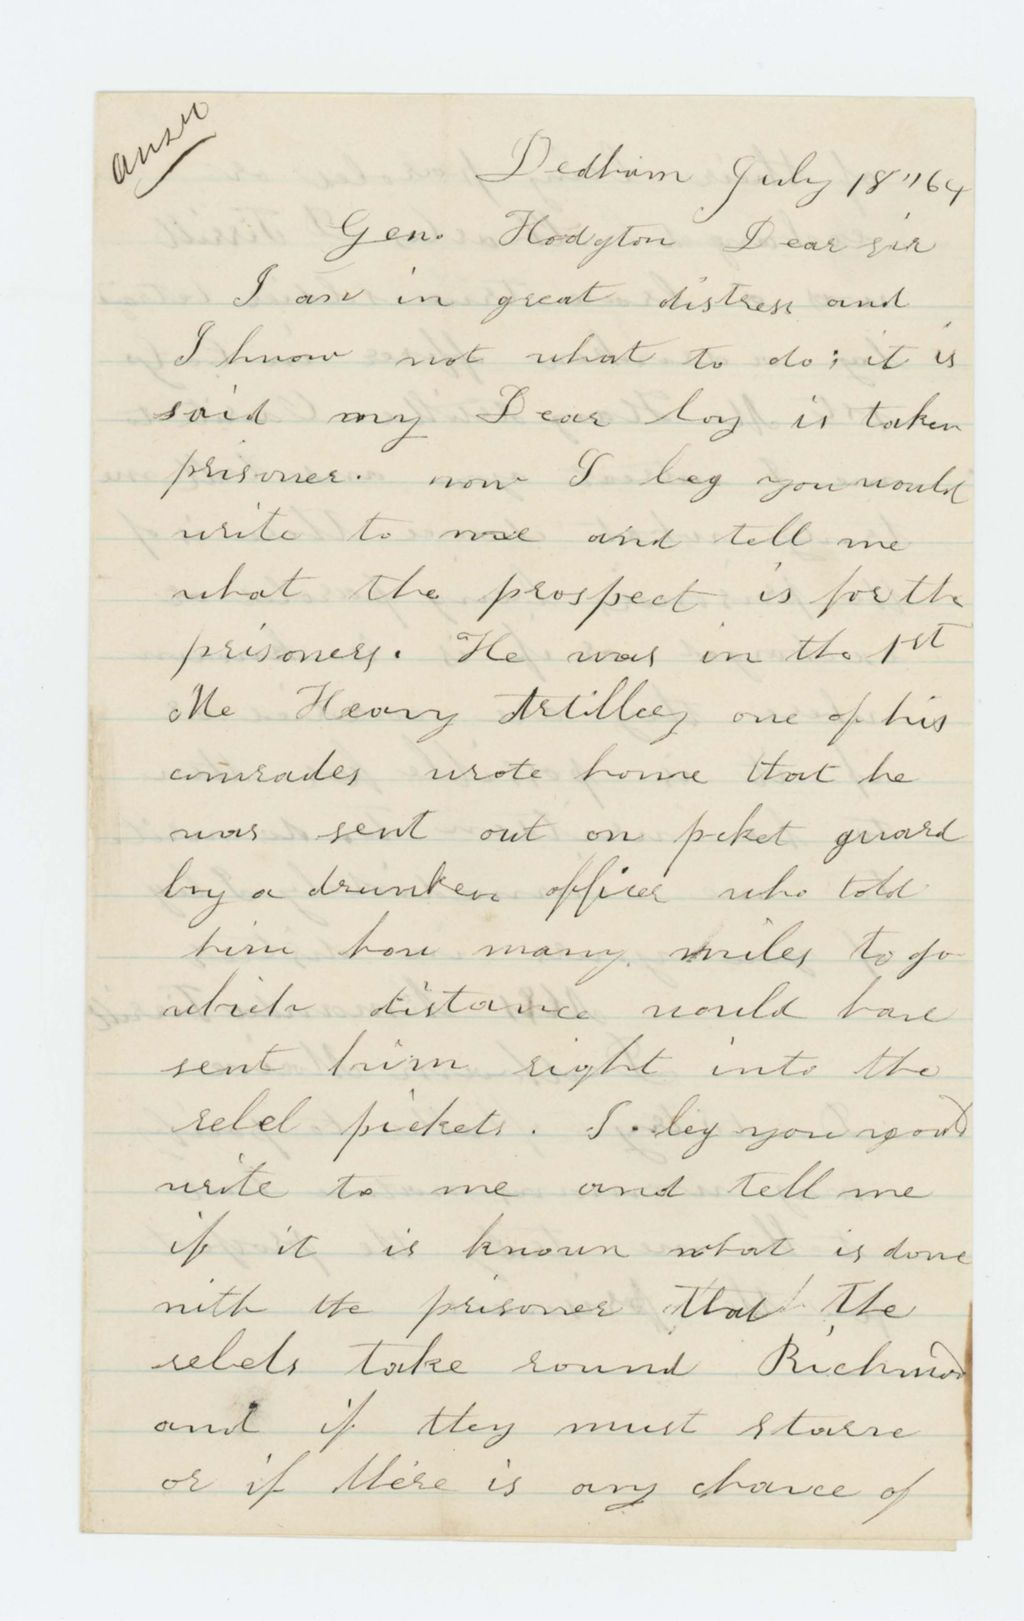 ansd
Dedham July 18" 64
Gen. Hodgton Dear sir
I am in great distress and
I know not what to do; it is
said my Dear boy is taken
prisoner. now I beg you would
write to me and tell me
what the prospect is for the
prisoners. He was in the 1st
Me Heavy Artillery one of his
comrades wrote home that he
was sent out on picket guard
by a drunken officer who told
him how many miles to go
which distance would have
sent him right into the
rebel pickets. I beg you would
write to me and tell me
if it is known what is done
with the prisoner that the
rebels take round Richmond
and if they must starve
or if there is any chance of